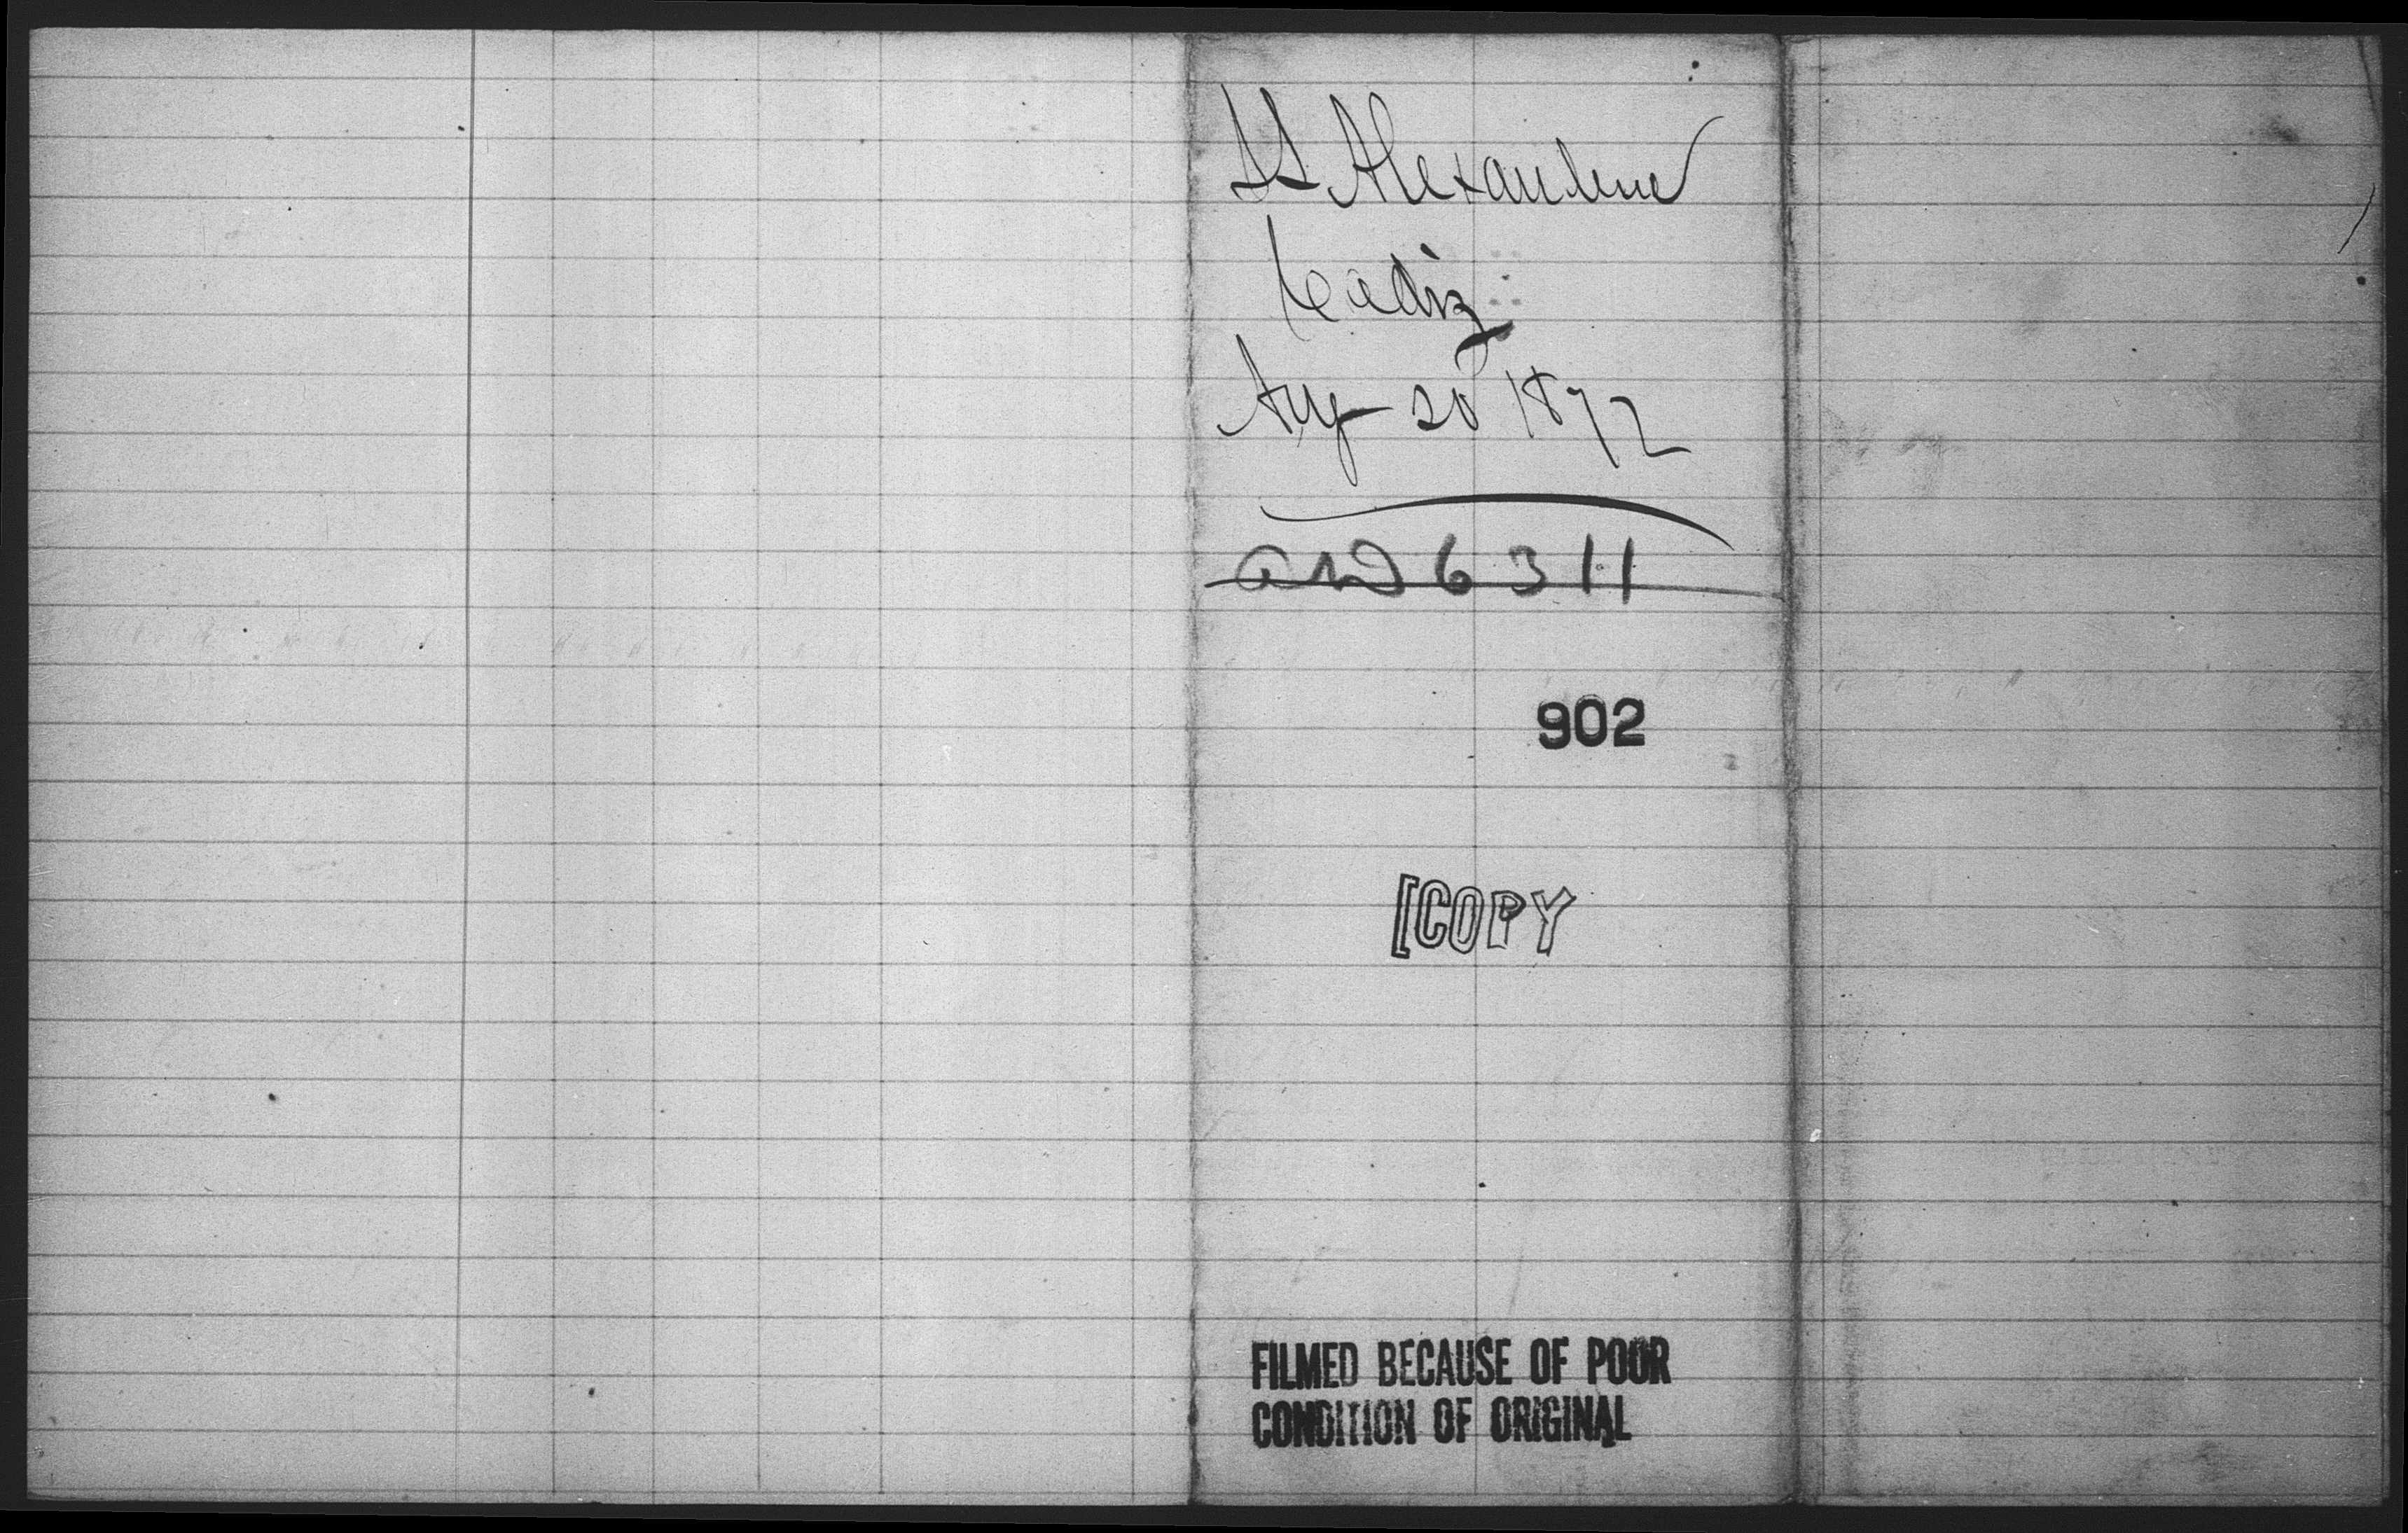 SS Alexandrine
Cadiz
Aug 20 1872
and 6311
902
[COPY
FILMED BECAUSE OF POOR
CONDITION OF ORIGINAL